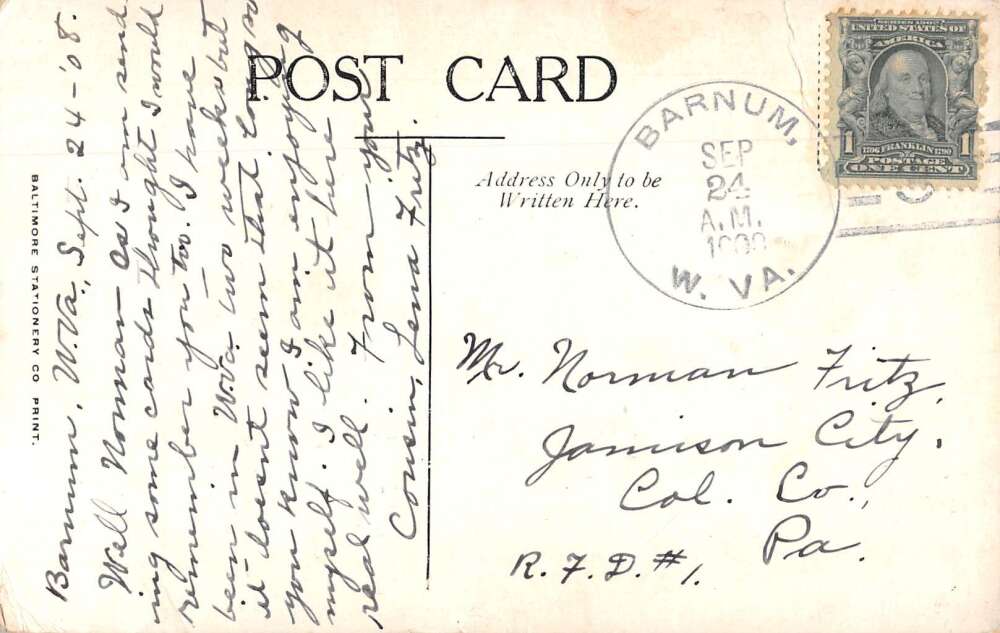 POST CARD
Address Only to be
Written Here.
BALTIMORE STATIONERY CO PRINT.
Barnum, W.Va., Sept. 24-'08.
Well Norman as I am send
ing some cards thought I would
remember you too. I have
been in W.Va. two weeks but
it doesent seem that long
you know. I am enjoying
myself. I like it here
real well. From your
Cousin, Lena Fritz.
BARNUM,
SEP
24
A.M.
W. VA.
SERIES 1902
UNITED STATES OF
AMERICA
1 1
1706 FRANKLIN 1790
POSTAGE
ONE CENT
Mr. Norman Fritz,
Jamison City,
Col. Co.,
Pa.
R.F.D. #1.